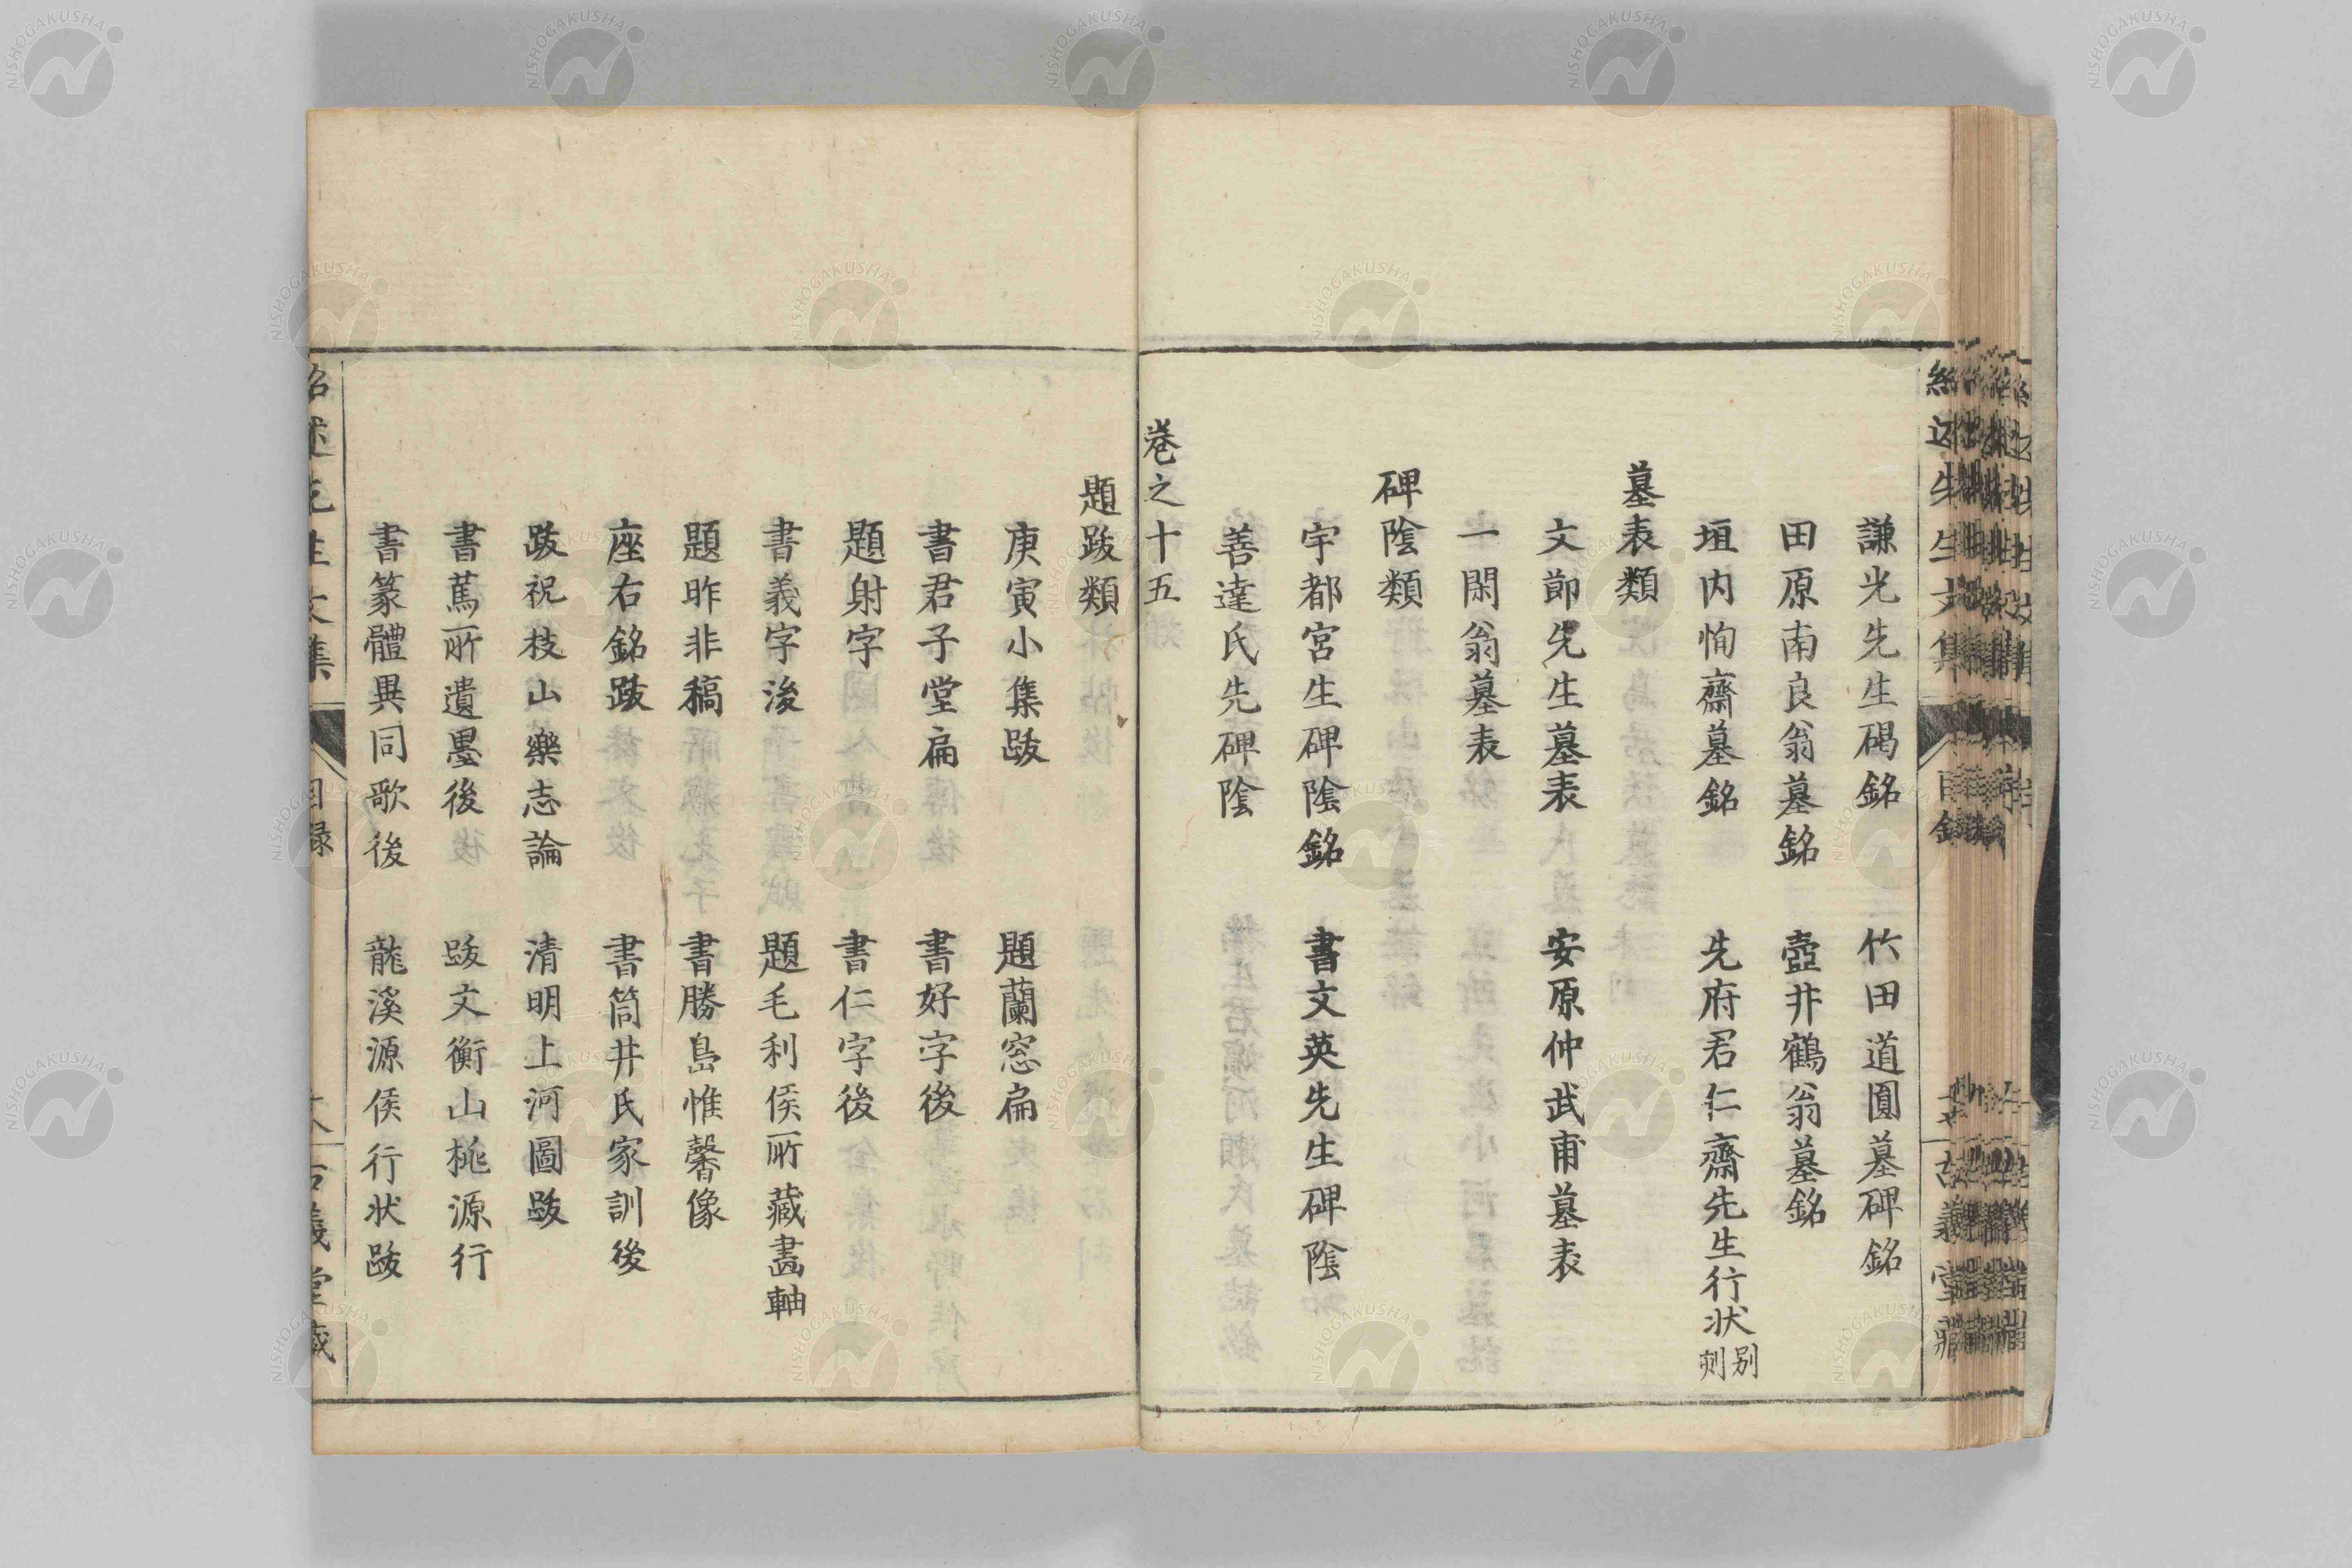 謙光先生碣銘　竹田道圓墓碑銘
田原南良翁墓銘　壺井鶴翁墓銘
垣内恂齋墓銘　先府君仁齋先生行状别刻
墓表類
文節先生墓表　安原仲武甫墓表
一閑翁墓表
碑陰類
宇都宮生碑陰銘　書文英先生碑陰
善達氏先碑陰
卷之十五
題跋類
庚寅小集跋　題蘭窓扁
書君子堂扁　書好字後
題射字　書仁字後
書義字後　題毛利侯所藏畫軸
題昨非稿　書勝島惟馨像
座右銘跋　書筒井氏家訓後
跋祝枝山樂志論　清明上河圖跋
書蔿所遺墨後　跋文衡山桃源行
書篆體異同歌後　龍溪源侯行状跋
紹述先生文集　目録　古義堂藏
NISHOGAKUSHA